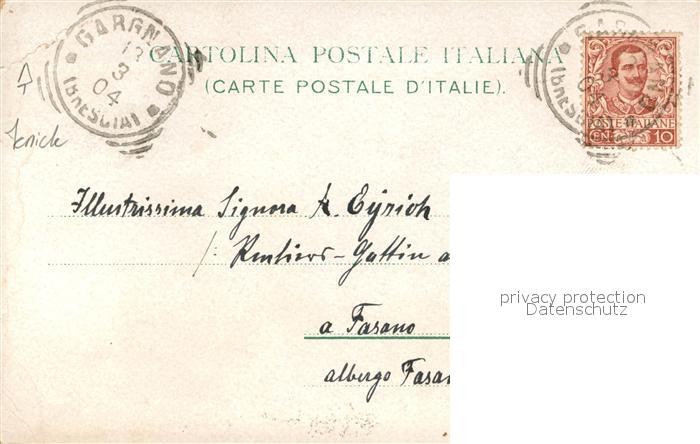 GARGNANO
(BRESCIA)
13
3
04
CARTOLINA POSTALE ITALIANA
(CARTE POSTALE D'ITALIE).
GARGNANO
(BRESCIA)
POSTE ITALIANE
CENT. 10
Knick
Illustrissima Signora A. Eyrich
Rentiers-Gattin a
a Fasano
albergo Fasan
privacy protection
Datenschutz